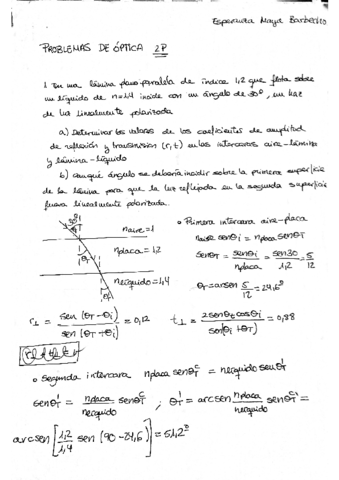 Esperanza Maya Barbecho
PROBLEMAS DE ÓPTICA 2P
1. En una lámina plano paralela de índice 1,2 que flota sobre
un líquido de n=1,4 incide con un ángulo de 30°, un haz
de luz linealmente polarizada
a) Determinar los valores de los coeficientes de amplitud
de reflexión y transmisión (r, t) en las intercaras aire-lámina
y lámina-líquido
b) ¿con qué ángulo se debería incidir sobre la primera superficie
de la lámina para que la luz reflejada en la segunda superficie
fuera linealmente polarizada.
30°
θT
naire=1
nplaca=1,2
θT
nlíquido=1,4
θT'
• Primera intercara aire-placa
naire senθi = nplaca senθT
senθT = senθi / nplaca = sen30 / 1,2 = 5/12
θT = arcsen 5/12 = 24,6°
r⊥ = sen (θT - θi) / sen (θT + θi) = 0,12
t⊥ = 2senθt cosθi / sen(θi + θT) = 0,88
• Segunda intercara nplaca senθTc = nlíquido senθT'
senθT' = nplaca / nlíquido senθTc ; θT' = arcsen nplaca / nlíquido senθTc
arcsen [1,2 / 1,4 sen (90 - 24,6)] = 51,2°